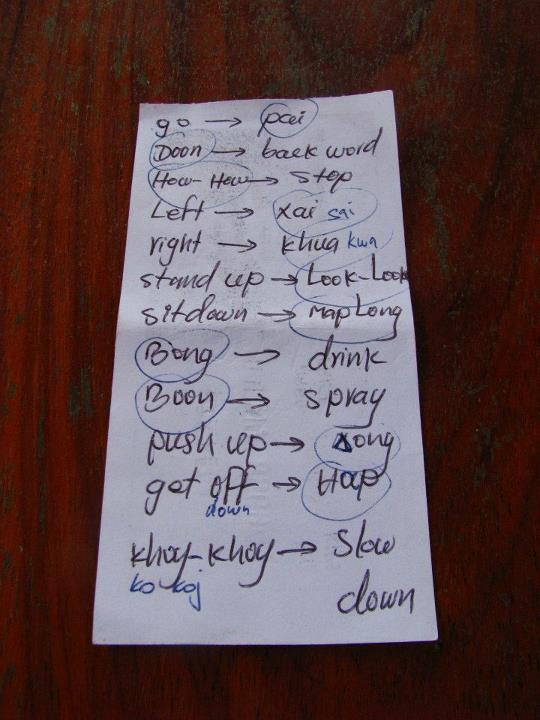 go → pai
Doon → back word
How-How → stop
Left → xai sai
right → khua kwa
stand up → Look-Look
sit down → MapLong
Bong → drink
Boon → spray
push up → song
get off → Hap
down
khoy-khoy → Slow
ko koj
down